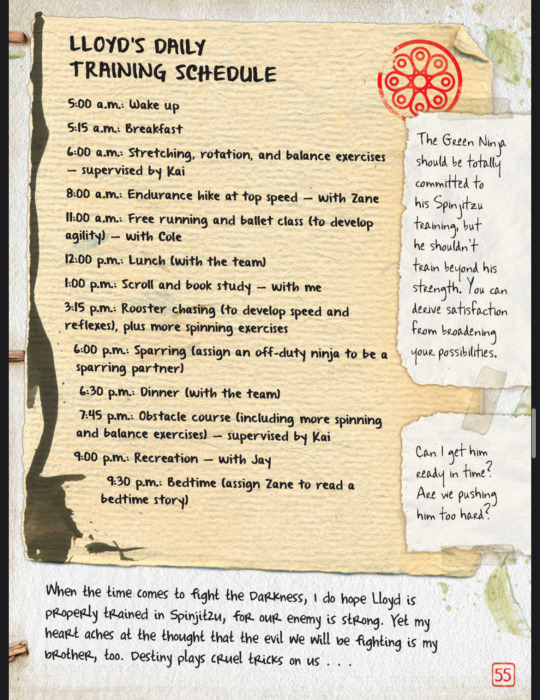 LLOYD'S DAILY
TRAINING SCHEDULE
5:00 a.m.: Wake up
5:15 a.m.: Breakfast
6:00 a.m.: Stretching, rotation, and balance exercises
– supervised by Kai
8:00 a.m.: Endurance hike at top speed – with Zane
11:00 a.m.: Free running and ballet class (to develop
agility) – with Cole
12:00 p.m.: Lunch (with the team)
1:00 p.m.: Scroll and book study – with me
3:15 p.m.: Rooster chasing (to develop speed and
reflexes), plus more spinning exercises
6:00 p.m.: Sparring (assign an off-duty ninja to be a
sparring partner)
6:30 p.m.: Dinner (with the team)
7:45 p.m.: Obstacle course (including more spinning
and balance exercises) – supervised by Kai
9:00 p.m.: Recreation – with Jay
9:30 p.m.: Bedtime (assign Zane to read a
bedtime story)
The Green Ninja
should be totally
committed to
his Spinjitzu
training, but
he shouldn't
train beyond his
strength. You can
derive satisfaction
from broadening
your possibilities.
Can I get him
ready in time?
Are we pushing
him too hard?
When the time comes to fight the Darkness, I do hope Lloyd is
properly trained in Spinjitzu, for our enemy is strong. Yet my
heart aches at the thought that the evil we will be fighting is my
brother, too. Destiny plays cruel tricks on us . . .
55